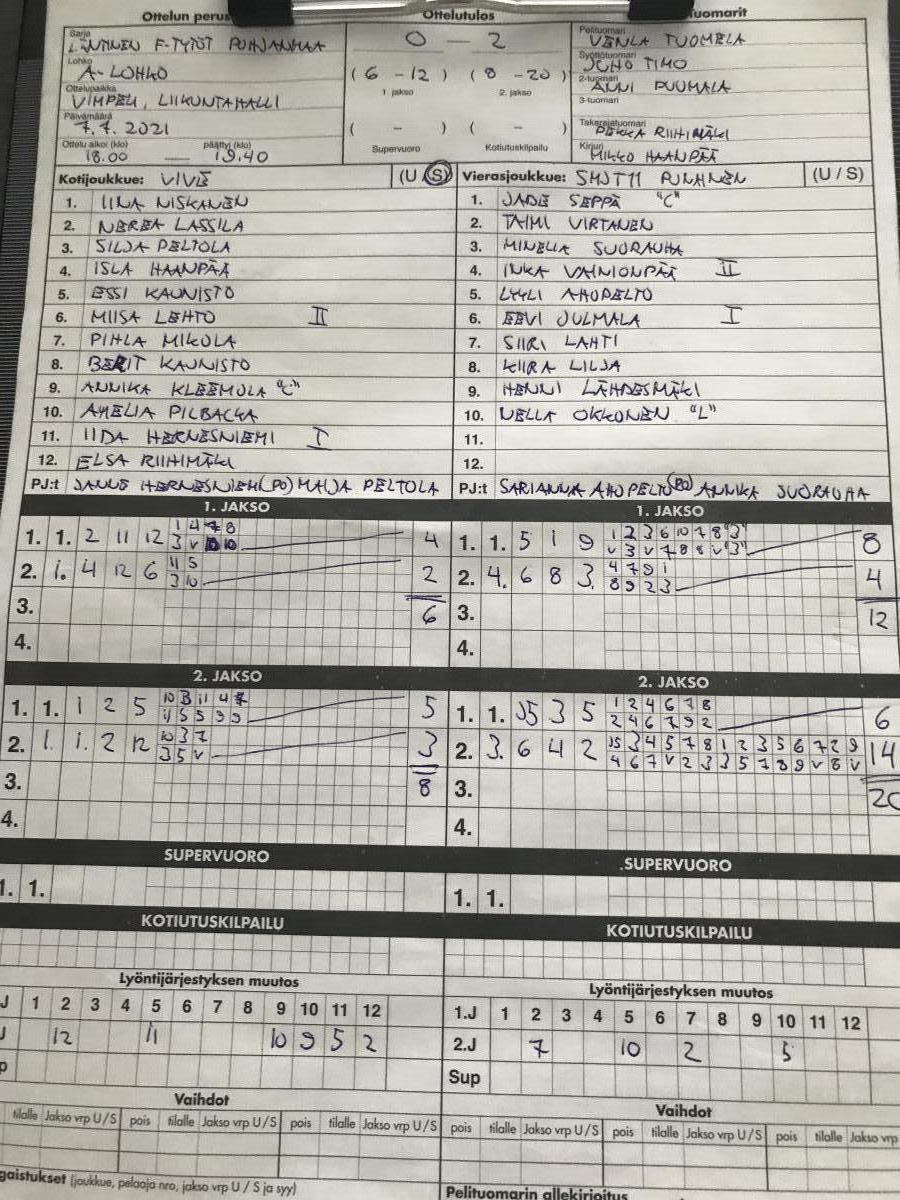 Ottelun perus
Ottelutulos
tuomarit
Sarja
LÄNTINEN F-TYTÖT POHJANMAA
Lohko
A-LOHKO
Ottelupaikka
VIMPELI, LIIKUNTAHALLI
Päivämäärä
7.7. 2021
Ottelu alkoi (klo) päättyi (klo)
18.00 — 19.40
0 — 2
( 6 - 12 ) ( 8 - 20 )
1. jakso 2. jakso
( - ) ( - )
Supervuoro Kotiutuskilpailu
Pelituomari
VENLA TUOMELA
Syöttötuomari
JUHO TIMO
2-tuomari
ANNI PUUMALA
3-tuomari
Takarajatuomari
PEKKA RIIHIMÄKI
Kirjuri
MIKKO HAANPÄÄ
Kotijoukkue: VIVE (U / S)
1. IINA NISKANEN
2. NEREA LASSILA
3. SILJA PELTOLA
4. ISLA HAANPÄÄ
5. ESSI KAUNISTO
6. MIISA LEHTO II
7. PIHLA MIKOLA
8. BERIT KAUNISTO
9. ANNIKA KLEEMOLA "C"
10. AMELIA PILBACKA
11. IIDA HERNESNIEMI I
12. ELSA RIIHIMÄKI
PJ:t JANNE HERNESNIEMI (PO) MAIJA PELTOLA
Vierasjoukkue: SMJT11 PUNAINEN (U / S)
1. JADE SEPPÄ "C"
2. TAIMI VIRTANEN
3. MINELLA SUORAUHA
4. INKA VAINIONPÄÄ II
5. LYYLI AHOPELTO
6. EEVI JULMALA I
7. SIIRI LAHTI
8. KIIRA LILJA
9. HENNI LÄHDESMÄKI
10. NELLA OKKONEN "L"
11.
12.
PJ:t SARIANNA AHOPELTO (PO) ANNIKA SUORAUHA
1. JAKSO
1. 1. 2 11 12 1 4 7 8 4
3 V 10 10
2. 1. 4 12 6 11 5 2
3 10
3. 6
4.
1. JAKSO
1. 1. 5 1 9 1 2 3 6 10 7 8 "3" 8
V 3 V 7 8 8 V "3"
2. 4. 6 8 3. 4 7 9 1 4
8 9 2 3
3. 12
4.
2. JAKSO
1. 1. 1 2 5 10 3 11 4 7 5
11 5 5 9 9
2. 1. 1. 2 12 10 3 7 3
3 5 V
3. 8
4.
2. JAKSO
1. 1. J5 3 5 1 2 4 6 7 8 6
2 4 6 7 9 2
2. 3. 6 4 2 J5 3 4 5 7 8 1 2 3 5 6 7 2 9 14
4 6 7 V 2 3 3 5 7 8 9 V 8 V
3. 20
4.
SUPERVUORO
1. 1.
.SUPERVUORO
1. 1.
KOTIUTUSKILPAILU
KOTIUTUSKILPAILU
Lyöntijärjestyksen muutos
J 1 2 3 4 5 6 7 8 9 10 11 12
J 12 11 10 9 5 2
p
Lyöntijärjestyksen muutos
1.J 1 2 3 4 5 6 7 8 9 10 11 12
2.J 7 10 2 5
Sup
Vaihdot
tilalle Jakso vrp U/S pois tilalle Jakso vrp U/S pois tilalle Jakso vrp U/S
Vaihdot
pois tilalle Jakso vrp U/S pois tilalle Jakso vrp U/S pois tilalle Jakso vrp
gaistukset (joukkue, pelaaja nro, jakso vrp U / S ja syy)
Pelituomarin allekirjoitus